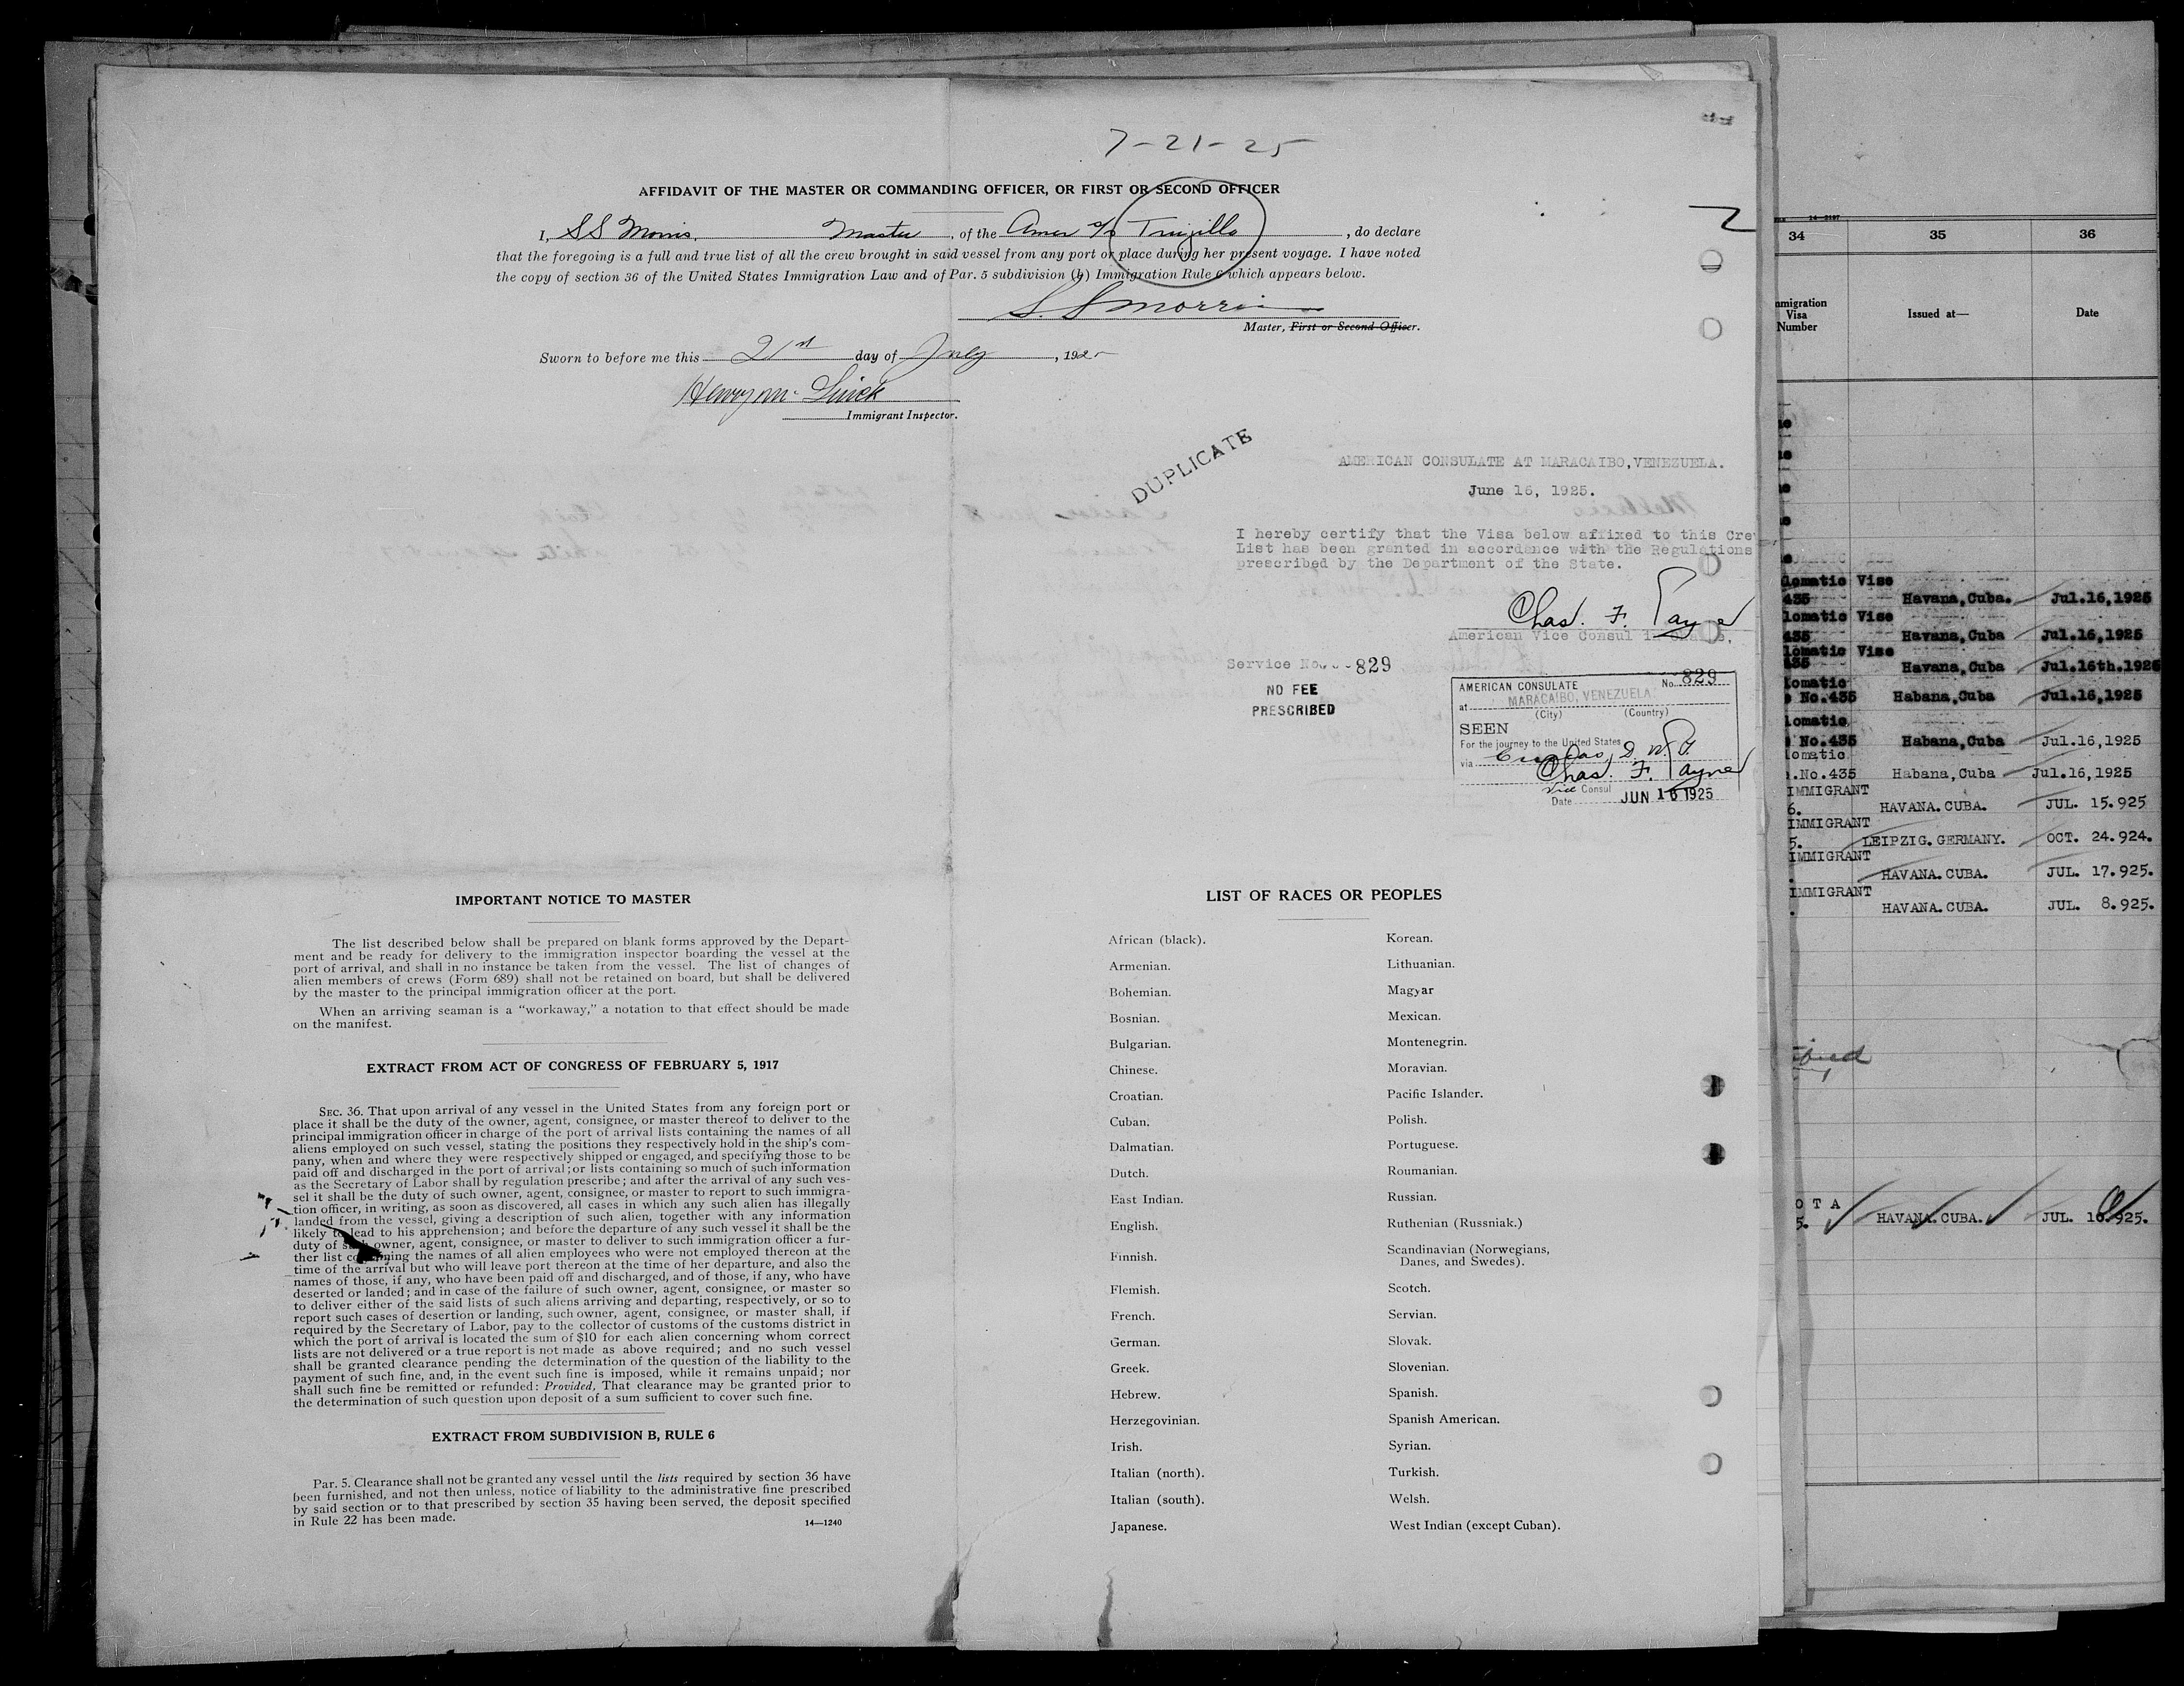 7-21-25
AFFIDAVIT OF THE MASTER OR COMMANDING OFFICER, OR FIRST OR SECOND OFFICER
I, S S Morris, Master, of the Amer S/S Trujillo, do declare
that the foregoing is a full and true list of all the crew brought in said vessel from any port or place during her present voyage. I have noted
the copy of section 36 of the United States Immigration Law and of Par. 5 subdivision (b) Immigration Rule 6 which appears below.
S. S Morris
Master, First or Second Officer.
Sworn to before me this 21st day of July, 1925
Henry M.
Immigrant Inspector.
DUPLICATE
AMERICAN CONSULATE AT MARACAIBO, VENEZUELA.
June 16, 1925.
I hereby certify that the Visa below affixed to this Cre
List has been granted in accordance with the Regulations
prescribed by the Department of the State.
Chas. F. Payne
American Vice Consul
Service No. 829
NO FEE
PRESCRIBED
AMERICAN CONSULATE No. 829
at MARACAIBO, VENEZUELA
(City) (Country)
SEEN
For the journey to the United States
via
Chas. F. Payne
Vice Consul
Date JUN 16 1925
IMPORTANT NOTICE TO MASTER
The list described below shall be prepared on blank forms approved by the Depart-
ment and be ready for delivery to the immigration inspector boarding the vessel at the
port of arrival, and shall in no instance be taken from the vessel. The list of changes of
alien members of crews (Form 689) shall not be retained on board, but shall be delivered
by the master to the principal immigration officer at the port.
When an arriving seaman is a "workaway," a notation to that effect should be made
on the manifest.
EXTRACT FROM ACT OF CONGRESS OF FEBRUARY 5, 1917
SEC. 36. That upon arrival of any vessel in the United States from any foreign port or
place it shall be the duty of the owner, agent, consignee, or master thereof to deliver to the
principal immigration officer in charge of the port of arrival lists containing the names of all
aliens employed on such vessel, stating the positions they respectively hold in the ship's com-
pany, when and where they were respectively shipped or engaged, and specifying those to be
paid off and discharged in the port of arrival; or lists containing so much of such information
as the Secretary of Labor shall by regulation prescribe; and after the arrival of any such ves-
sel it shall be the duty of such owner, agent, consignee, or master to report to such immigra-
tion officer, in writing, as soon as discovered, all cases in which any such alien has illegally
landed from the vessel, giving a description of such alien, together with any information
likely to lead to his apprehension; and before the departure of any such vessel it shall be the
duty of such owner, agent, consignee, or master to deliver to such immigration officer a fur-
ther list containing the names of all alien employees who were not employed thereon at the
time of the arrival but who will leave port thereon at the time of her departure, and also the
names of those, if any, who have been paid off and discharged, and of those, if any, who have
deserted or landed; and in case of the failure of such owner, agent, consignee, or master so
to deliver either of the said lists of such aliens arriving and departing, respectively, or so to
report such cases of desertion or landing, such owner, agent, consignee, or master shall, if
required by the Secretary of Labor, pay to the collector of customs of the customs district in
which the port of arrival is located the sum of $10 for each alien concerning whom correct
lists are not delivered or a true report is not made as above required; and no such vessel
shall be granted clearance pending the determination of the question of the liability to the
payment of such fine, and, in the event such fine is imposed, while it remains unpaid; nor
shall such fine be remitted or refunded: Provided, That clearance may be granted prior to
the determination of such question upon deposit of a sum sufficient to cover such fine.
EXTRACT FROM SUBDIVISION B, RULE 6
Par. 5. Clearance shall not be granted any vessel until the lists required by section 36 have
been furnished, and not then unless, notice of liability to the administrative fine prescribed
by said section or to that prescribed by section 35 having been served, the deposit specified
in Rule 22 has been made.
14—1240
LIST OF RACES OR PEOPLES
African (black).
Armenian.
Bohemian.
Bosnian.
Bulgarian.
Chinese.
Croatian.
Cuban.
Dalmatian.
Dutch.
East Indian.
English.
Finnish.
Flemish.
French.
German.
Greek.
Hebrew.
Herzegovinian.
Irish.
Italian (north).
Italian (south).
Japanese.
Korean.
Lithuanian.
Magyar
Mexican.
Montenegrin.
Moravian.
Pacific Islander.
Polish.
Portuguese.
Roumanian.
Russian.
Ruthenian (Russniak.)
Scandinavian (Norwegians,
Danes, and Swedes).
Scotch.
Servian.
Slovak.
Slovenian.
Spanish.
Spanish American.
Syrian.
Turkish.
Welsh.
West Indian (except Cuban).
14-2197
34 35 36
mmigration
Visa
Number
Issued at—
Date
lomatic Vise
435 Havana, Cuba. Jul.16,1925
lomatic Vise
435 Havana, Cuba Jul.16,1925
lomatic Vise
435 Havana, Cuba Jul.16th.1925
lomatic
No.435 Habana, Cuba Jul.16,1925
lomatic
No.435 Habana, Cuba Jul.16,1925
lomatic
.No.435 Habana, Cuba Jul.16,1925
IMMIGRANT
6. HAVANA. CUBA. JUL. 15.925
IMMIGRANT
5. LEIPZIG. GERMANY. OCT. 24.924.
IMMIGRANT
HAVANA. CUBA. JUL. 17.925.
IMMIGRANT
HAVANA. CUBA. JUL. 8.925.
O T A
5. HAVANA. CUBA. JUL. 16.925.